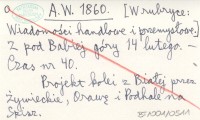 A.W. 1860. [W rubryce:
Wiadomości handlowe i przemysłowe.]
Z pod Babiej góry 14 lutego. —
Czas nr 40.
Projekt kolei z Białej przez
Żywieckie, Orawę i Podhale na
Spisz.